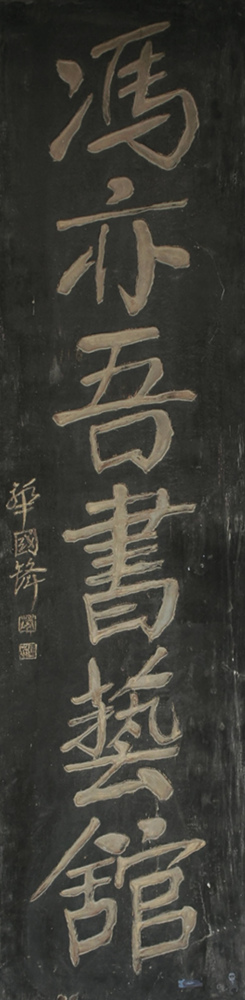 馮亦吾書藝舘
華國鋒